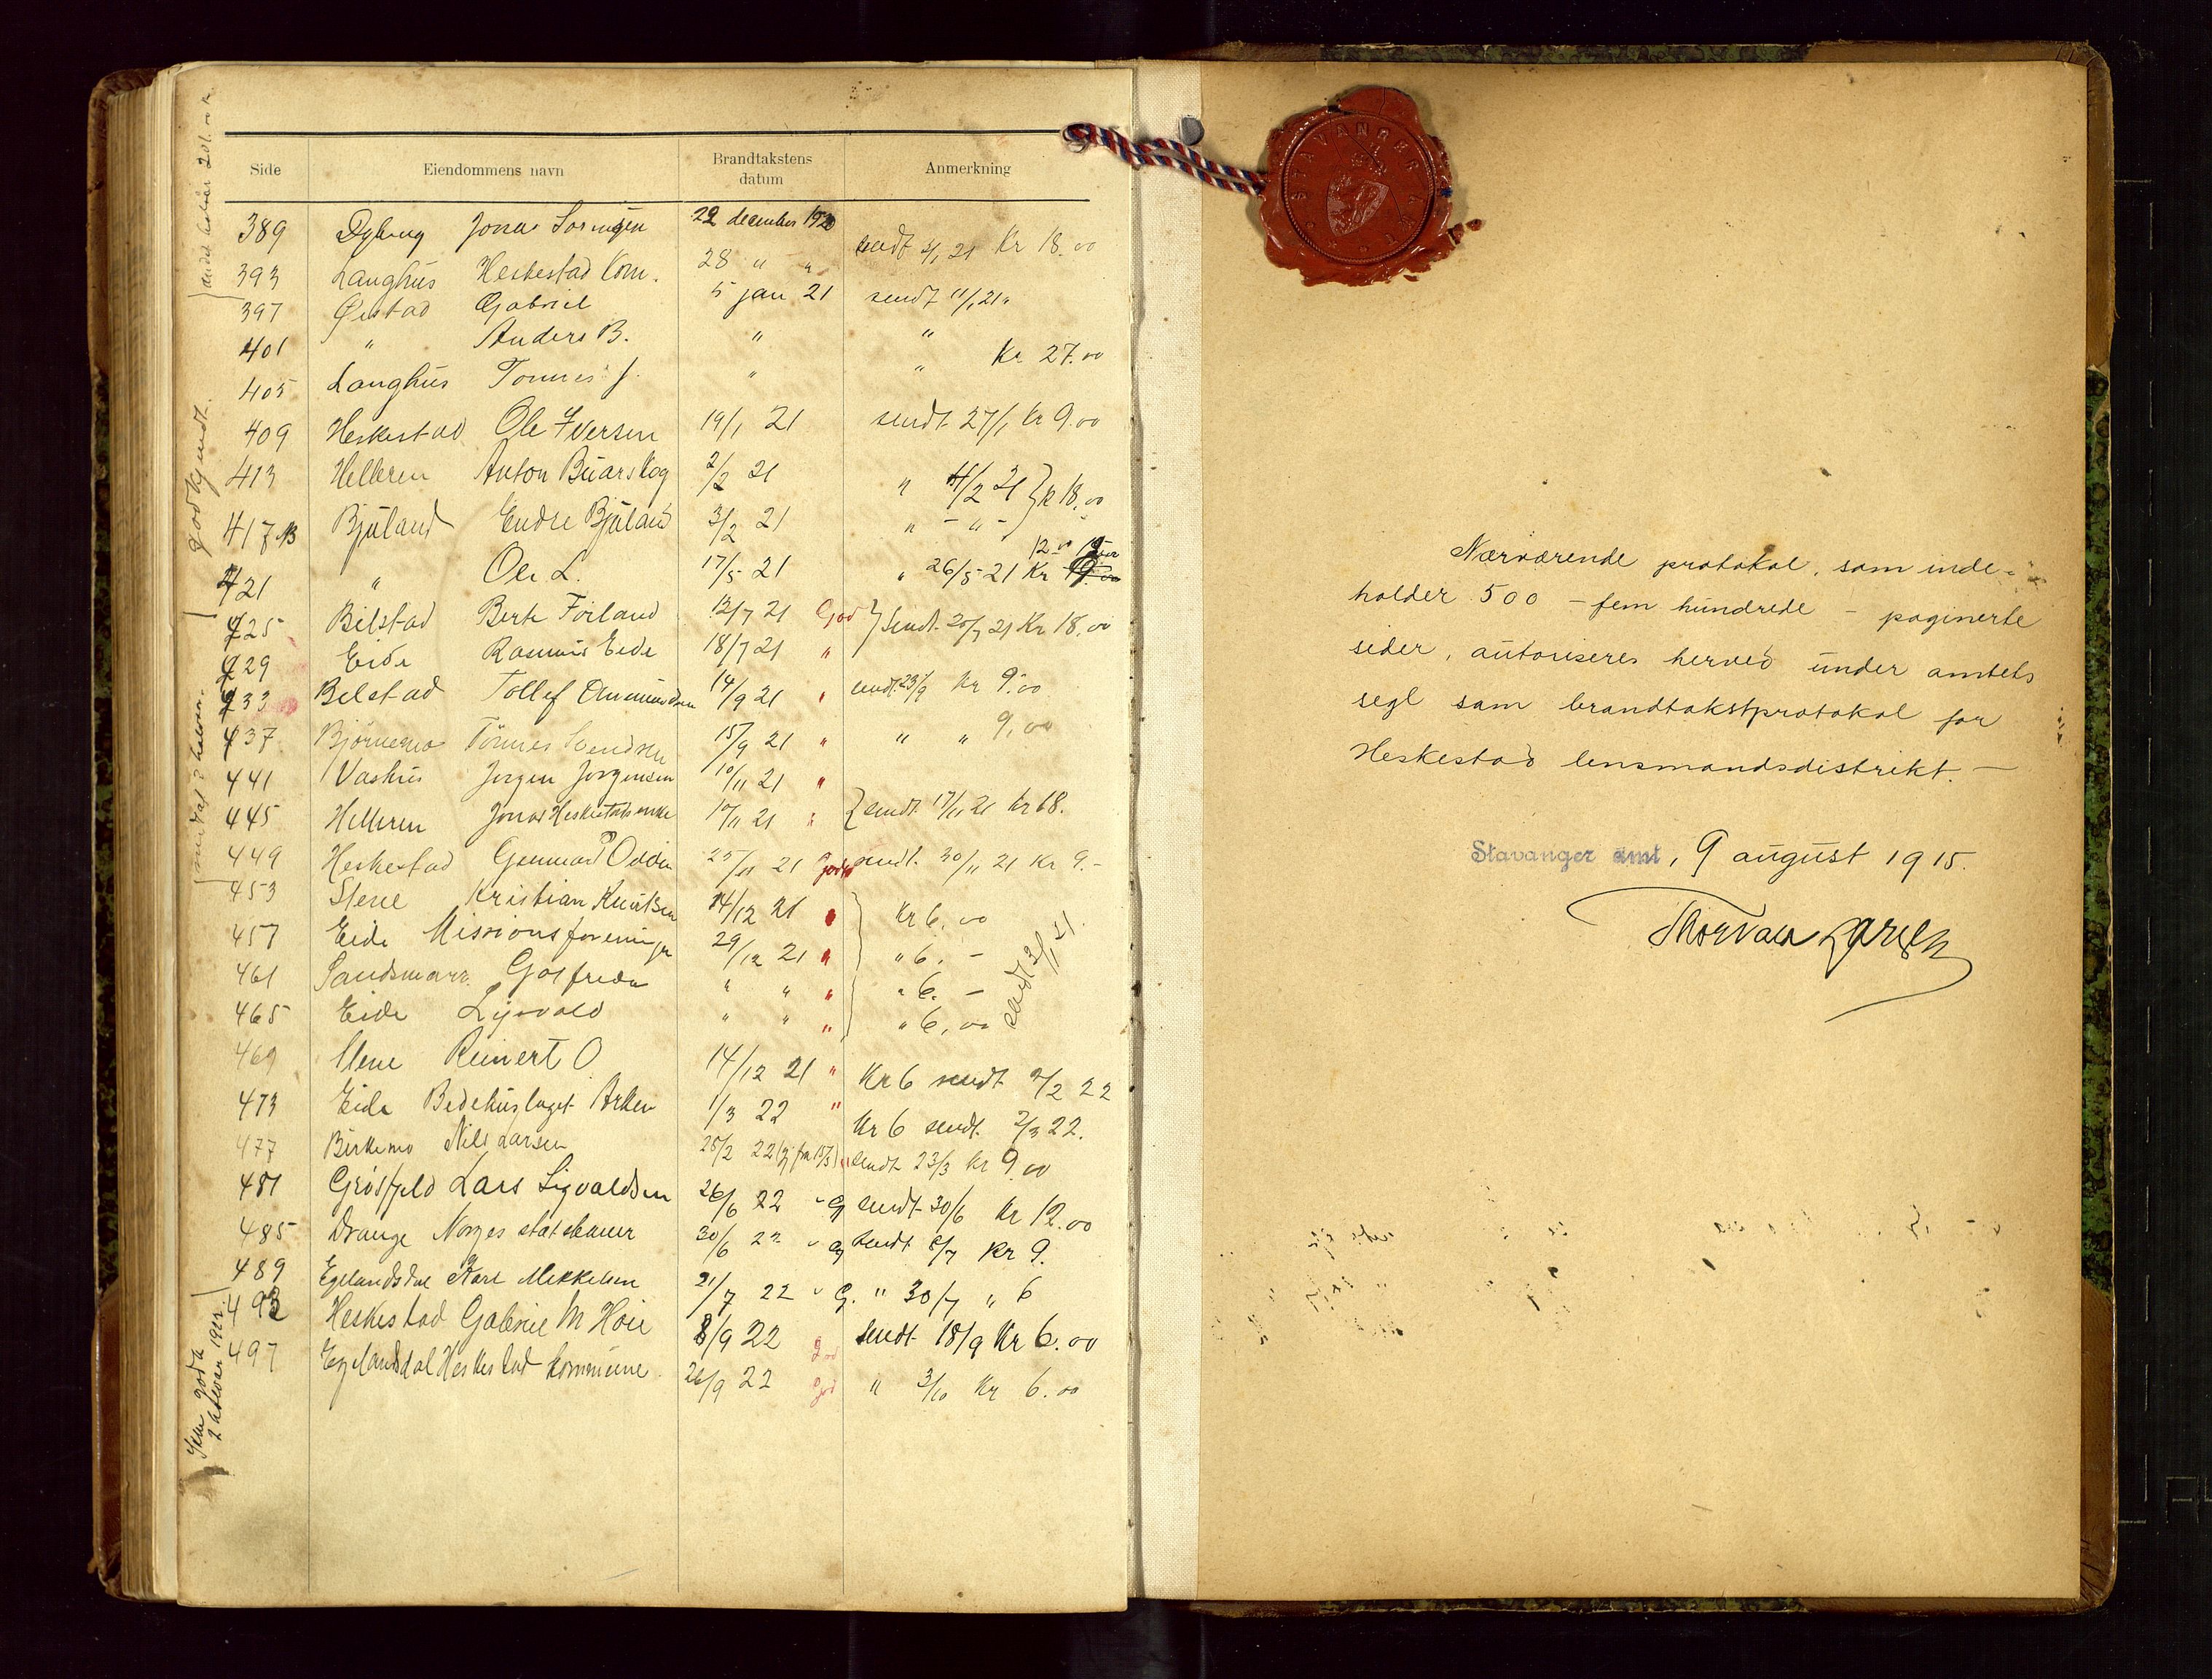 Side Eiendommens navn Brandtakstens datum Anmerkning
389 Dybing Jonas 22 december 1920 sendt 3/1 21 Kr 18.00
393 Langhus Heskestad Kom. 28 " "
397 Østad Gabriel 5 jan 21 sendt 11/1 21
401 " Anders B. " "
405 Langhus Tønnes J. " " Kr 27.00
409 Heskestad Ole Iversen 19/1 21 sendt 27/1 Kr 9.00
413 Helleren Anton Buarskog 2/2 21 " 4/2 21 } kr 18.00
417 Bjuland Endre Bjuland 3/2 21 " - " -
421 " Ole L. 17/5 21 " 26/5 21 Kr 12
425 Bilstad Berte Förland 12/7 21 God } Sendt 20/7 21 Kr 18.00
429 Eide Rasmus Eide 18/7 21 "
433 Bilstad Tollef Ommundsen 14/9 21 " sendt 23/9 Kr 9.00
437 Bjørnemo Tönnes Svendsen 15/9 21 " " " 9.00
441 Vashus Jørgen Jørgensen 10/11 21 "
445 Helleren Jonas Heskestads enke 10/11 21 " } sendt 17/11 21 Kr 18.
449 Heskestad Odden 25/11 21 sendt 30/11 21 Kr 9.-
453 Slene Kristian Knutsen 14/12 21 " Kr 6.00
457 Eide Missionsforeningen 29/12 21 " " 6. -
461 Sandsmark Gotfred " " " " 6. -
465 Eide Sigvald " " " " 6.00
469 Slene Reinert O. 14/12 21 " Kr 6 sendt 2/2 22
473 Eide Bedehuslaget Arken 1/3 22 " Kr 6 sendt 2/3 22.
477 Birkemo Nils Larsen 25/2 22 sendt 23/3 Kr 9.00
481 Grøsfjeld Lars Sigvaldsen 26/6 22 " G sendt 30/6 Kr 12.00
485 Drange Norges statsbaner 30/6 22 " G sendt 8/7 Kr 9.
489 Egelandsdal Karl Mikkelsen 21/7 22 " G. " 30/7 " 6
493 Heskestad Gabriel M Høie 8/9 22 god sendt 18/9 Kr 6.00
497 Egelandsdal Heskestad kommune 26/9 22 god " 3/10 Kr 6.00
godkjendt.
STAVANGER AMT
Nærværende protokol, som inde-
holder 500 - fem hundrede - paginerte
sider, autoriseres herved under amtets
segl som brandtakstprotokol for
Heskestad lensmandsdistrikt. -
Stavanger amt, 9 august 1915.
Thorvald Larsen